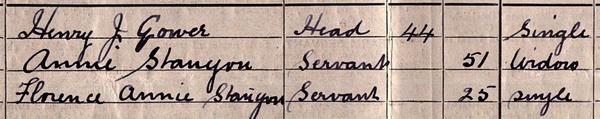 Henry J. Gower Head 44 Single
Annie Stanyon Servant 51 Widow
Florence Annie Stanyon Servant 25 single